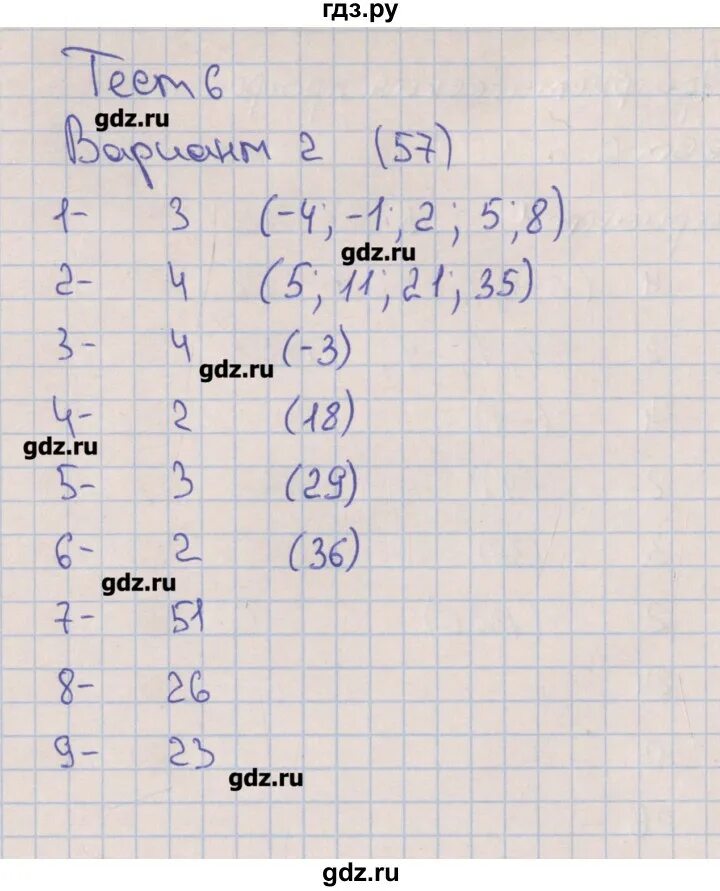 гдз.ру
Тест 6
gdz.ru
Вариант 2 (57)
1- 3 (-4; -1; 2; 5; 8)
gdz.ru
2- 4 (5; 11; 21; 35)
3- 4 (-3)
gdz.ru
4- 2 (18)
gdz.ru
5- 3 (29)
6- 2 (36)
gdz.ru
7- 51
8- 26
9- 23
gdz.ru
gdz.ru